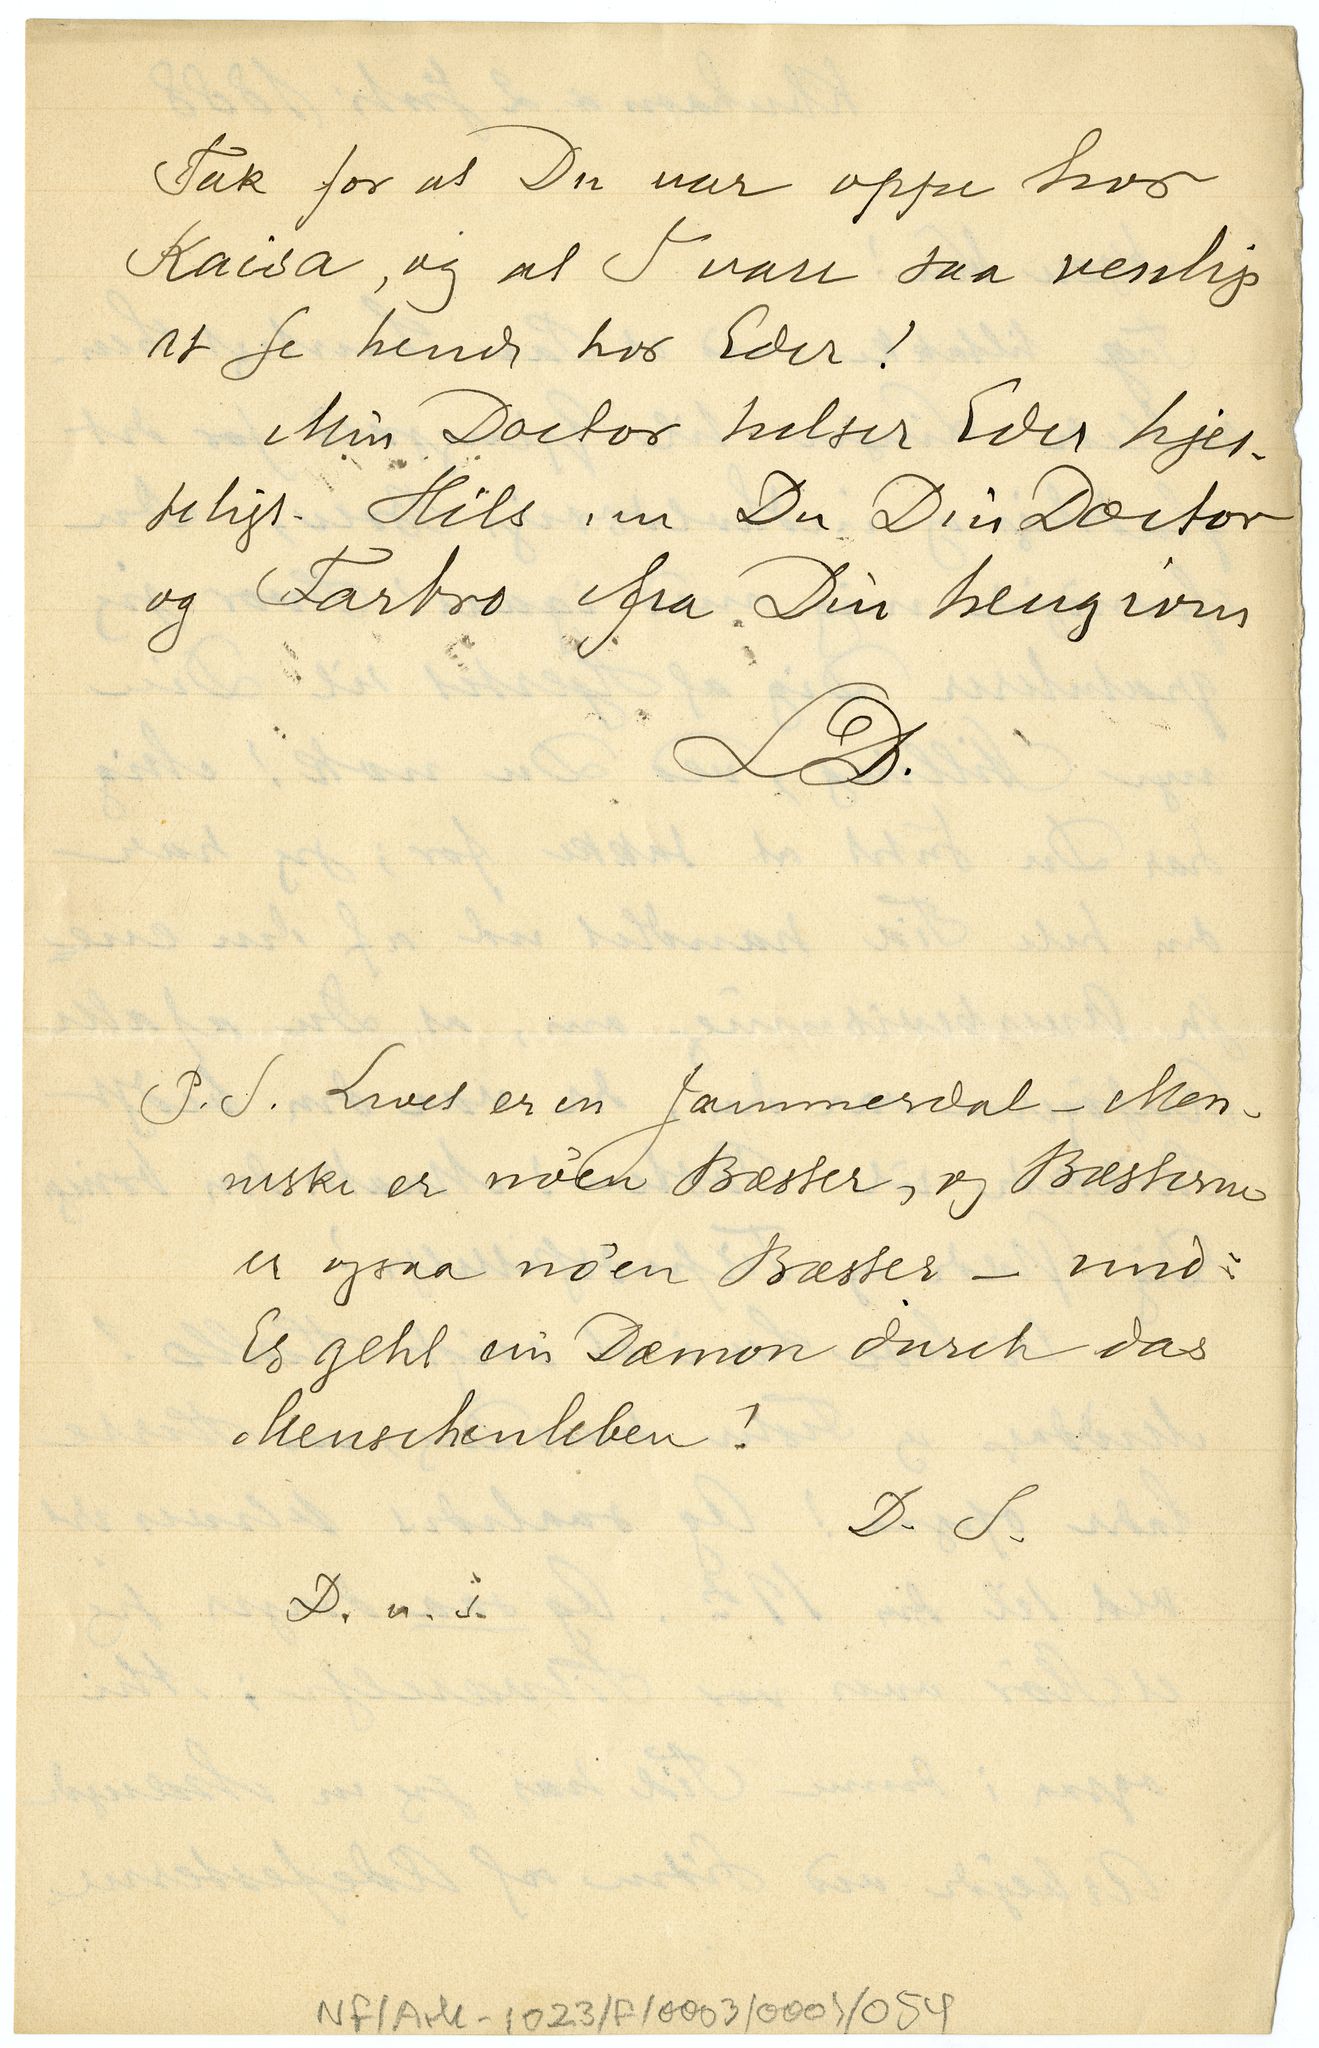 Tak for at Du var oppe hos
Kaisa, og at I vare saa venlig
at se hende hos Eder!
Min Doctor helser Eder hjer-
teligt. Hils nu Du Din Doctor
og Farbro fra Din hengivne
LD.
P.S. Livet er en Jammerdal – Men-
neske er nöen Bæster, og Bæsterne
er ogsaa nöen Bæster – und:
Es geht ein Dæmon durch das
Menschenleben!
D. S.
D. u. s.
NF/Ark-1023/F/0003/0003/054